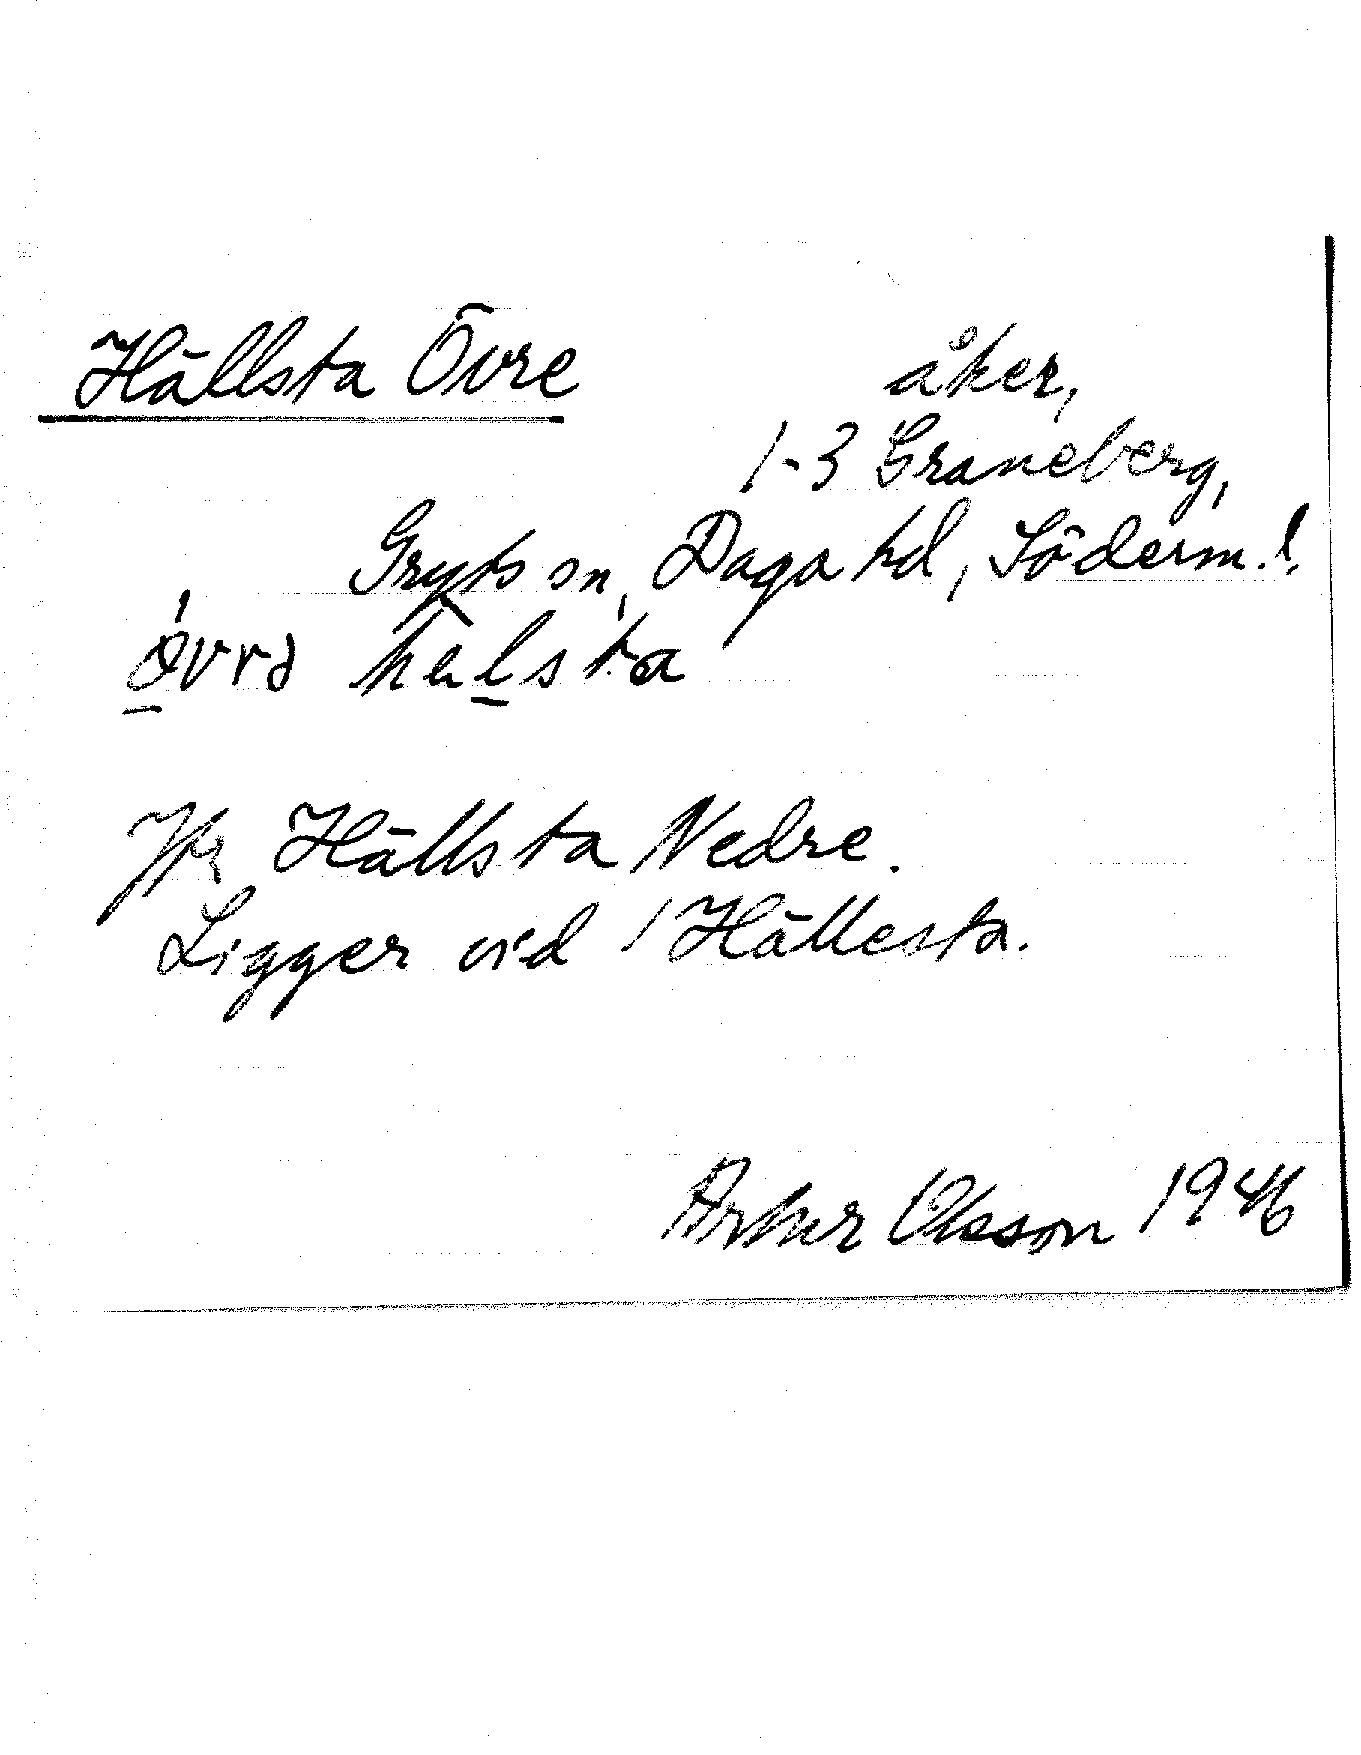 Hällsta Övre
åker,
1-3 Graneberg,
Gryts sn, Daga hd, Söderm.l.
övrə hälsta
Jfr Hällsta Nedre.
Ligger vid / Hällesta.
Artur Olsson 1946